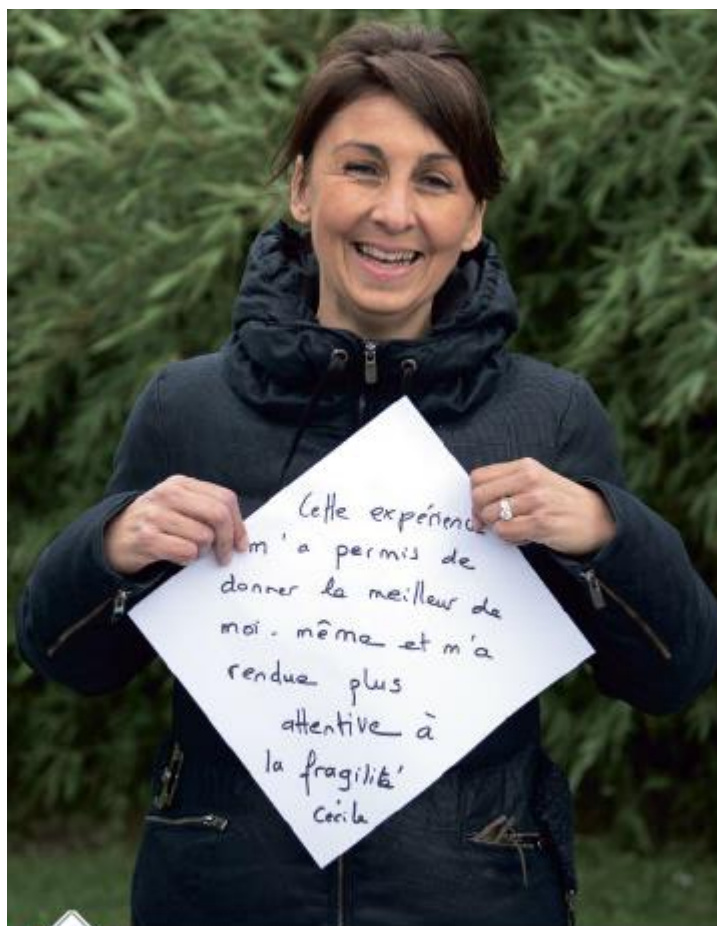 Cette expérience
m'a permis de
donner le meilleur de
moi-même et m'a
rendue plus
attentive à
la fragilité
Cécile